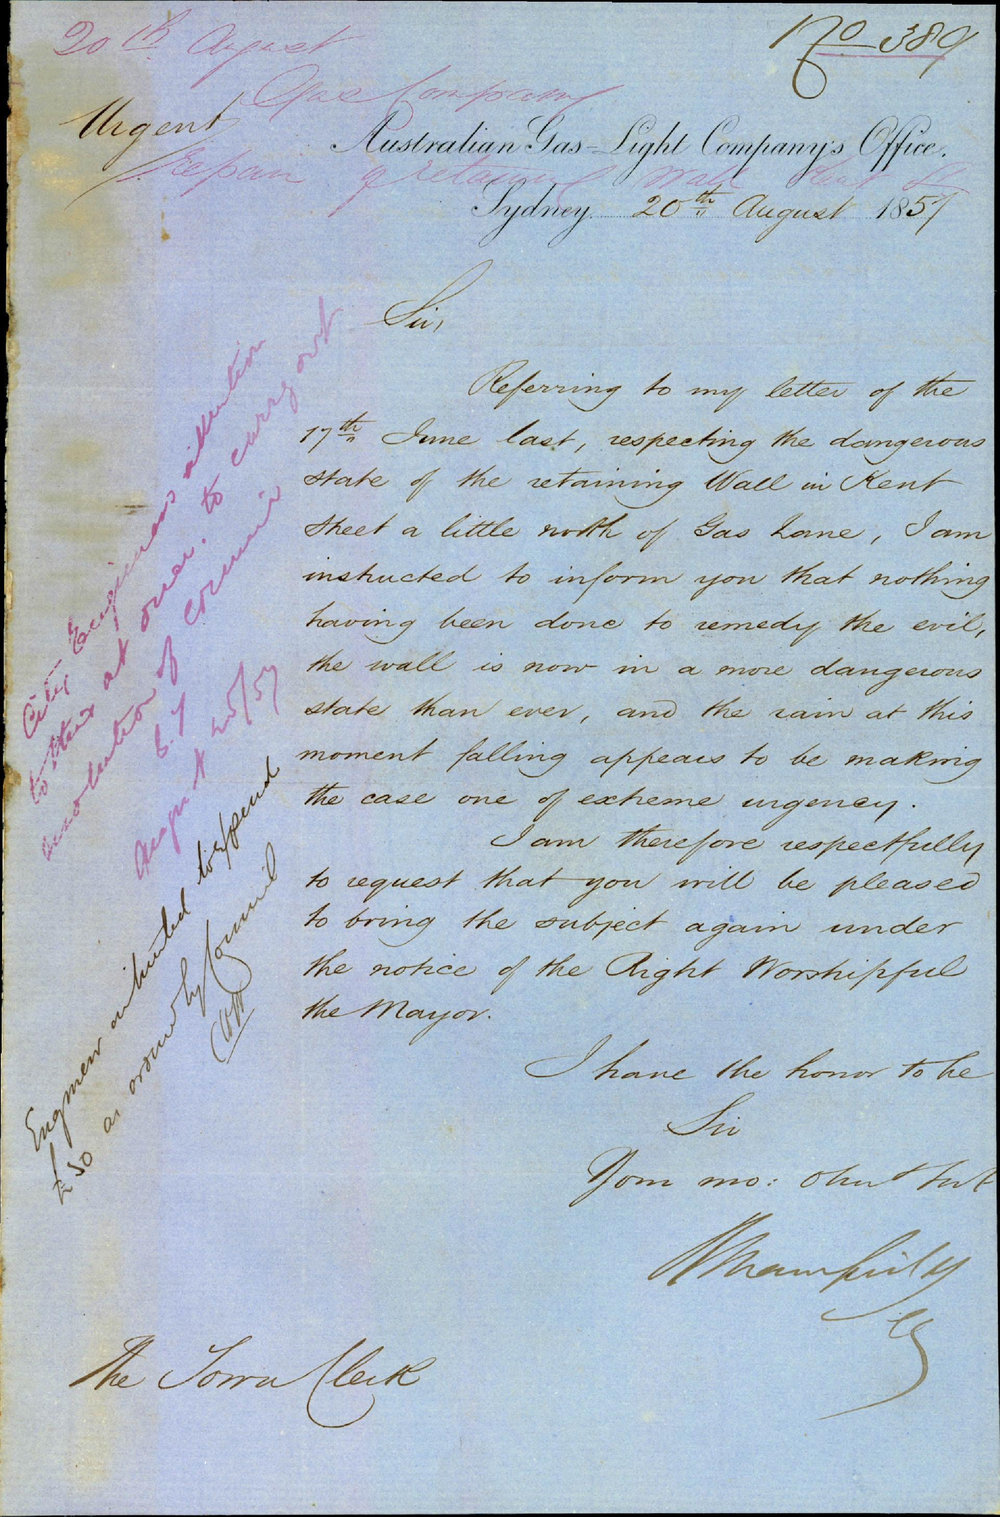 20th August
No 389
Gas Company
Urgent
Australian Gas-Light Company's Office.
Repair of retaining Wall Kent St
Sydney 20th August 1857
Sir,
Referring to my letter of the
17th June last, respecting the dangerous
state of the retaining Wall in Kent
Street a little north of Gas Lane, I am
instructed to inform you that nothing
having been done to remedy the evil,
the wall is now in a more dangerous
state than ever, and the rain at this
moment falling appears to be making
the case one of extreme urgency.
I am therefore respectfully
to request that you will be pleased
to bring the subject again under
the notice of the Right Worshipful
the Mayor.
I have the honor to be
Sir
Your mo: obedt Servt
Secy
The Town Clerk
City Engineers attention
to this at once. to carry out
resolution of Council
August 20/57
Engineer authorized to expend
£50 as ordered by Council